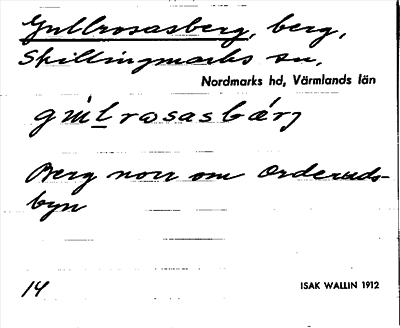 Gullrosasberg, berg,
Skillingmarks sn.
Nordmarks hd, Värmlands län
gúlrosasbǽrj
Berg norr om Orderuds-
byn
14
ISAK WALLIN 1912